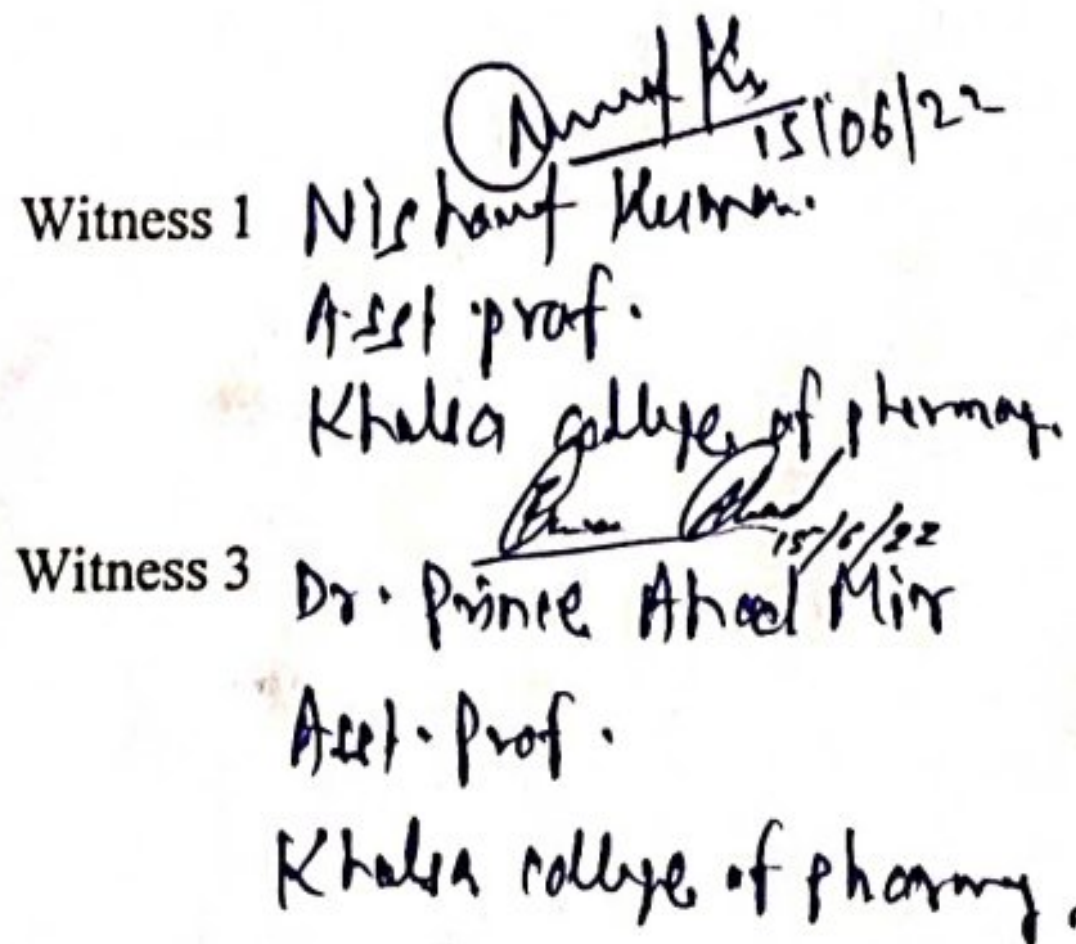 15/06/22
Witness 1 Nishant Kumar.
Asst prof.
Khalsa college of pharmacy.
15/6/22
Witness 3 Dr. Prince Ahad Mir
Asst. Prof.
Khalsa college of pharmacy.